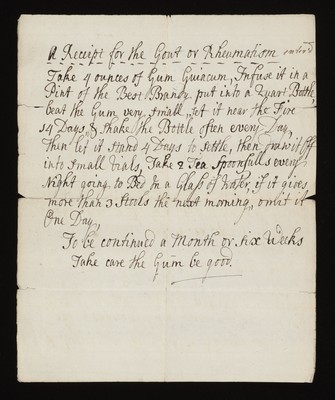 A Receipt for the Gout or Rheumatism
Take 4 ounces of Gum Guiacum, Infuse it in a
Pint of the Best Brandy put into a Quart Bottle,
beat the Gum very small, set it near the Fire
14 Days, & shake the Bottle often every Day,
Then let it stand 4 Days to settle, then draw it off
into small vials, Take 2 Tea spoonfulls every
Night going to Bed in a Glass of Water, if it gives
more than 3 stools the next morning, omit it
One Day,
To be continued a Month or six Weeks
Take care the Gum be good.